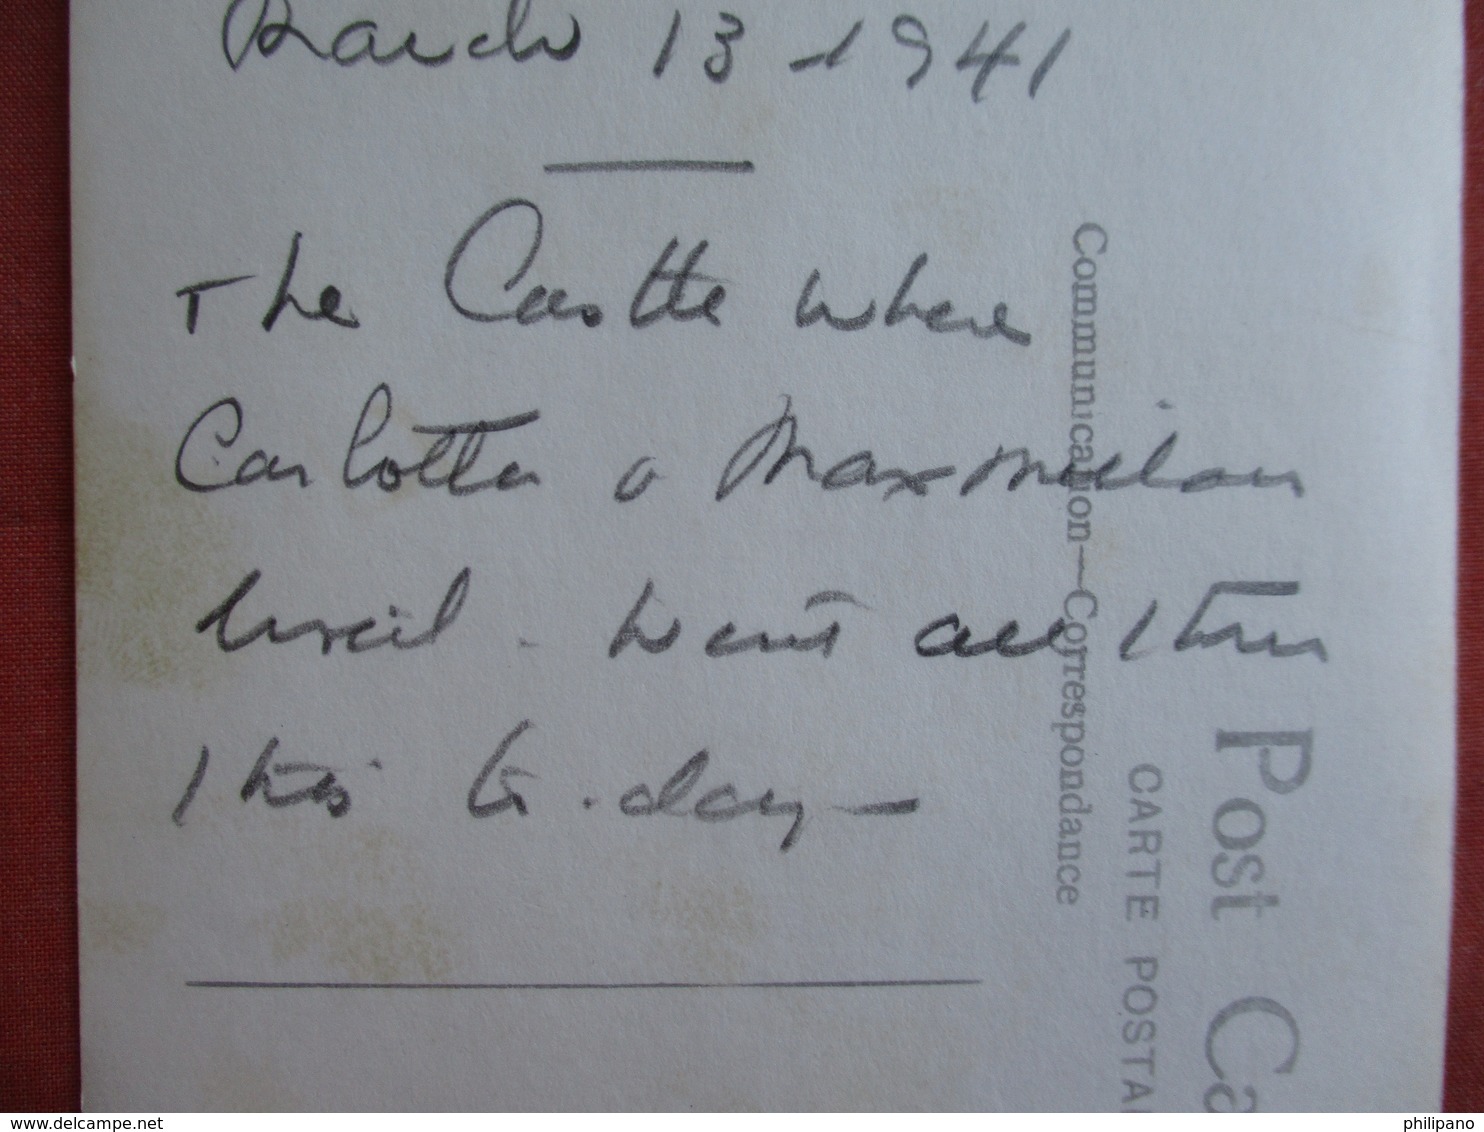 March 13 - 1941
The Castle where
Carlotta & Maxmilian
lived - Went all thru
this to-day -
Communication—Correspondance
CARTE POSTAL
Post Ca
philipano